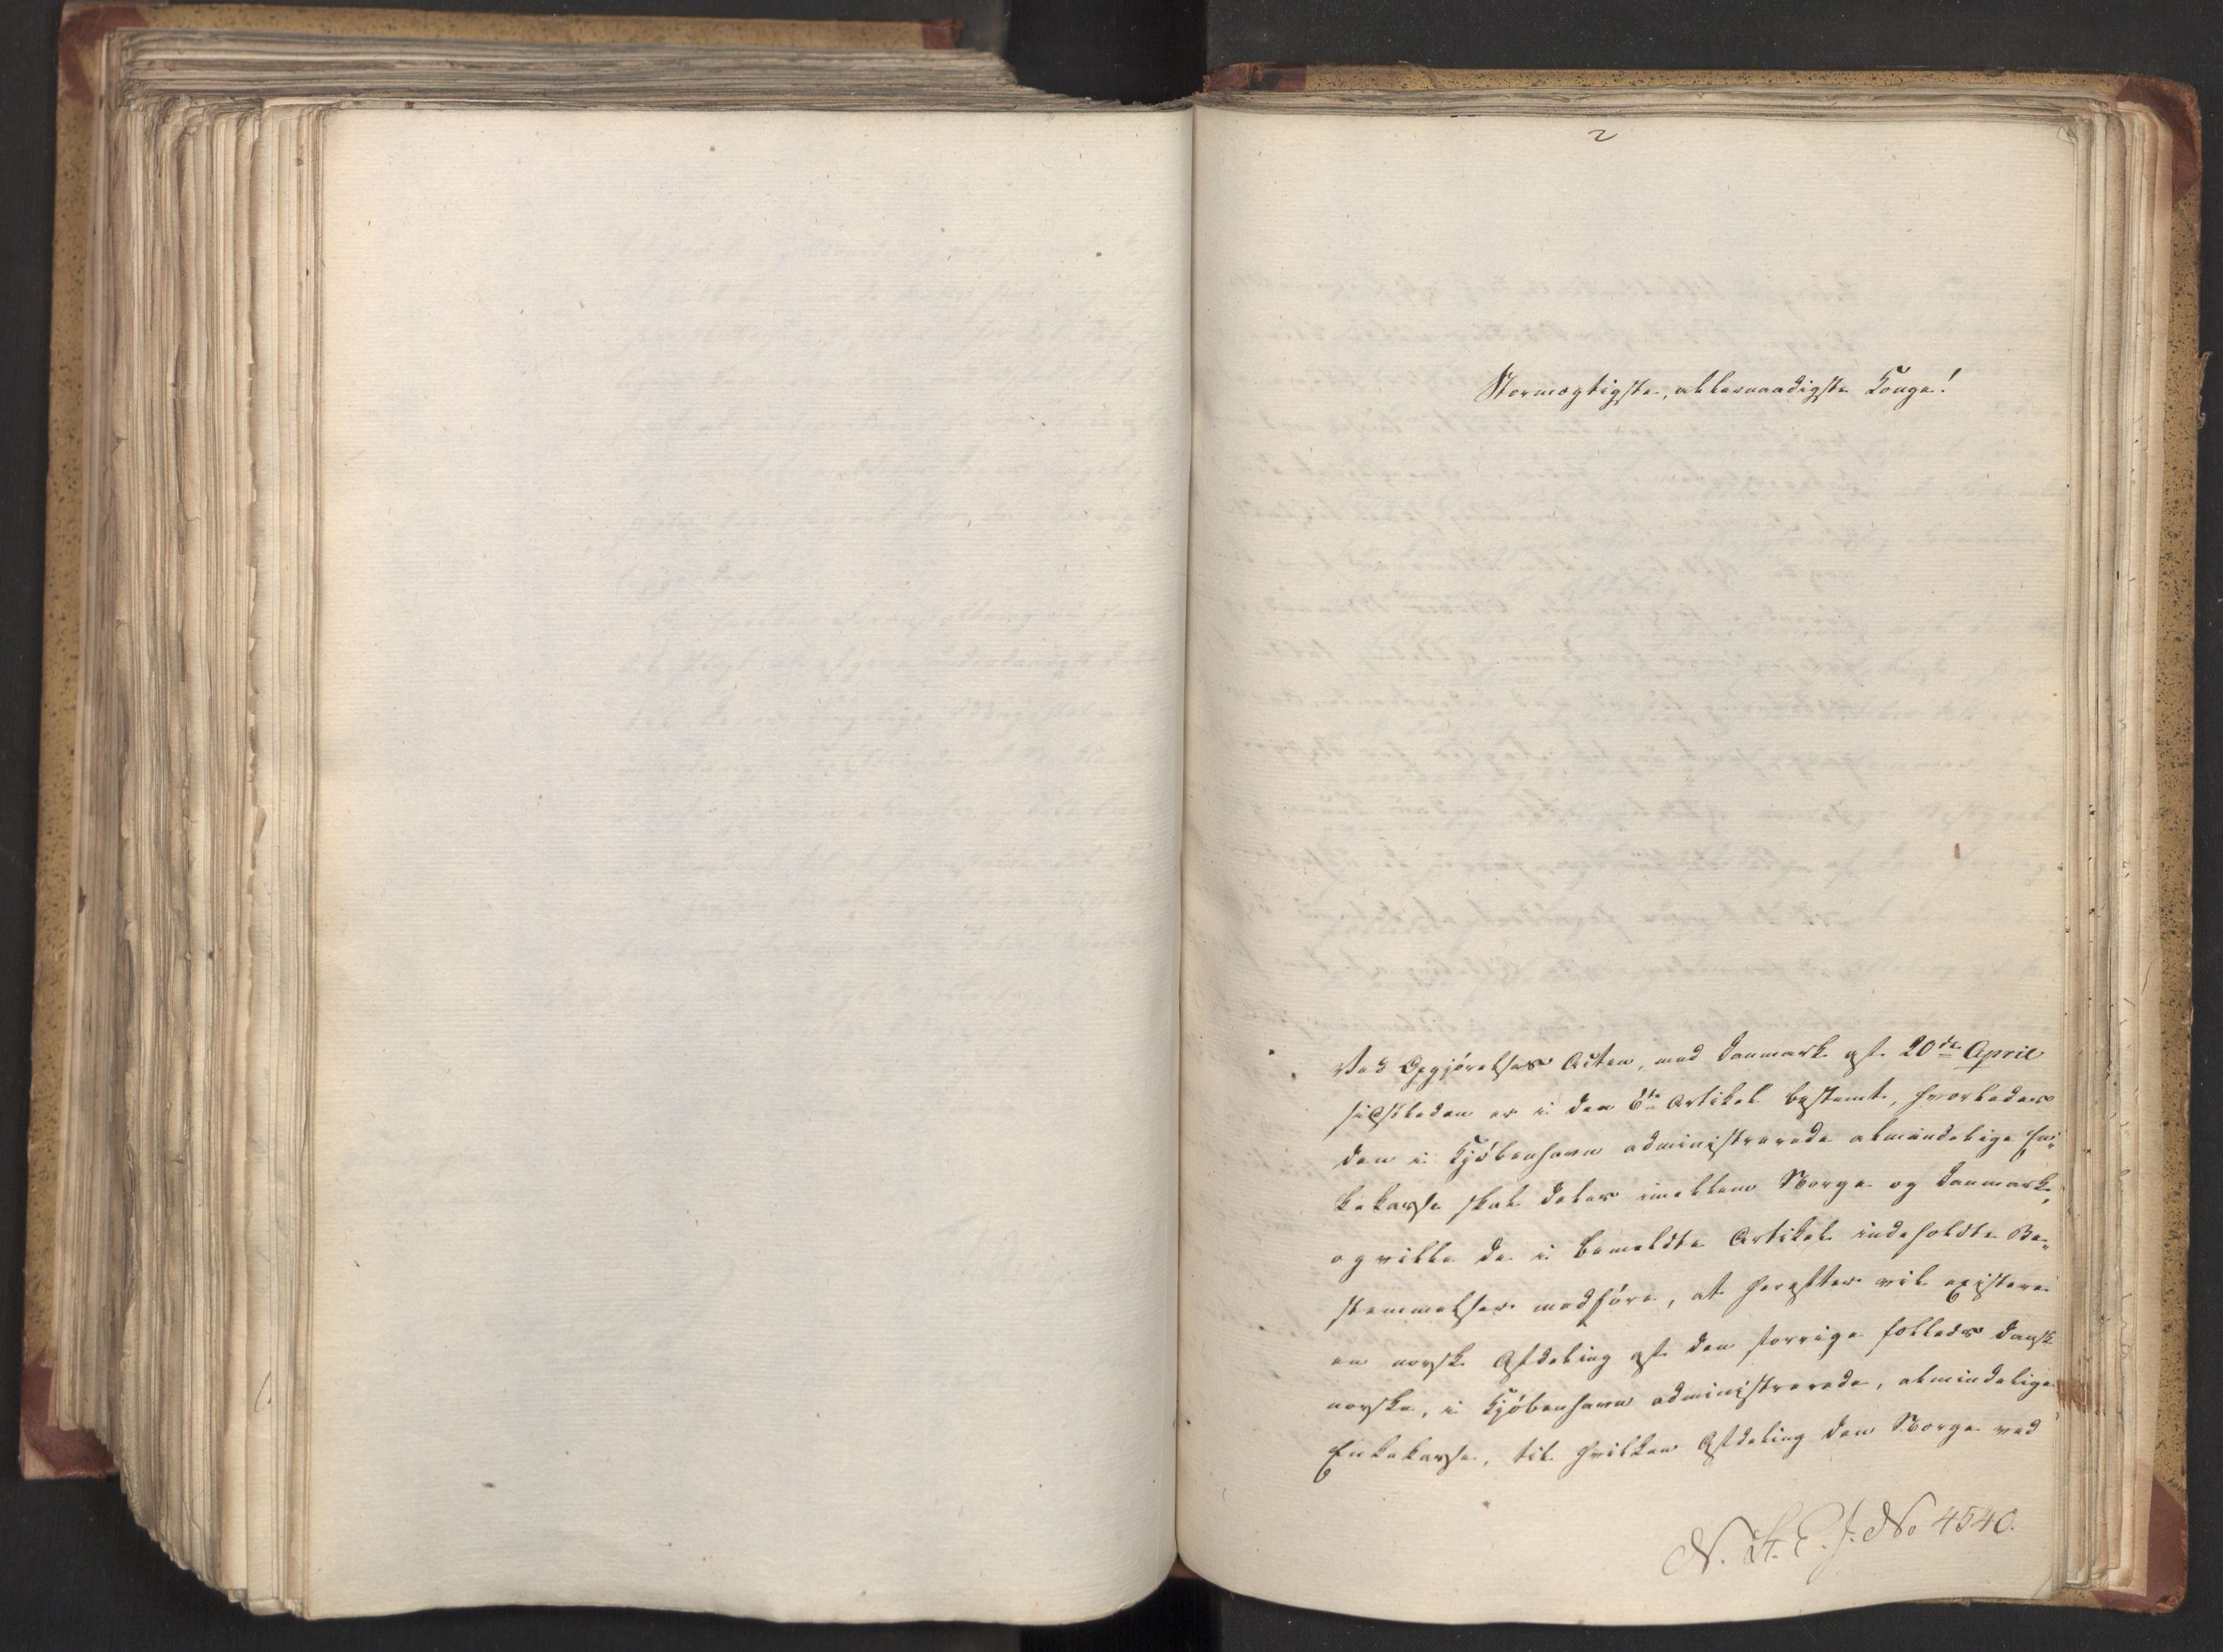 2
Stormægtigste, allernaadigste Konge!
Ved Opgjørelses Acten, med Danmark af 20de April
sidstleden er i den 6te Artikel bestemt, hvorledes
den i Kjøbenhavn administrerede almindelige En-
kekasse skal deles imellem Norge og Danmark,
og ville de i bemeldte Artikel indeholdte Be-
stemmelser medføre, at herefter vil existere
en norsk Afdeling af den forrige fælleds dansk
norske, i Kjøbenhavn administrerede, almindelige
Enkekasse, til hvilken Afdeling den Norge ved
N. St. E. J. No 4540.